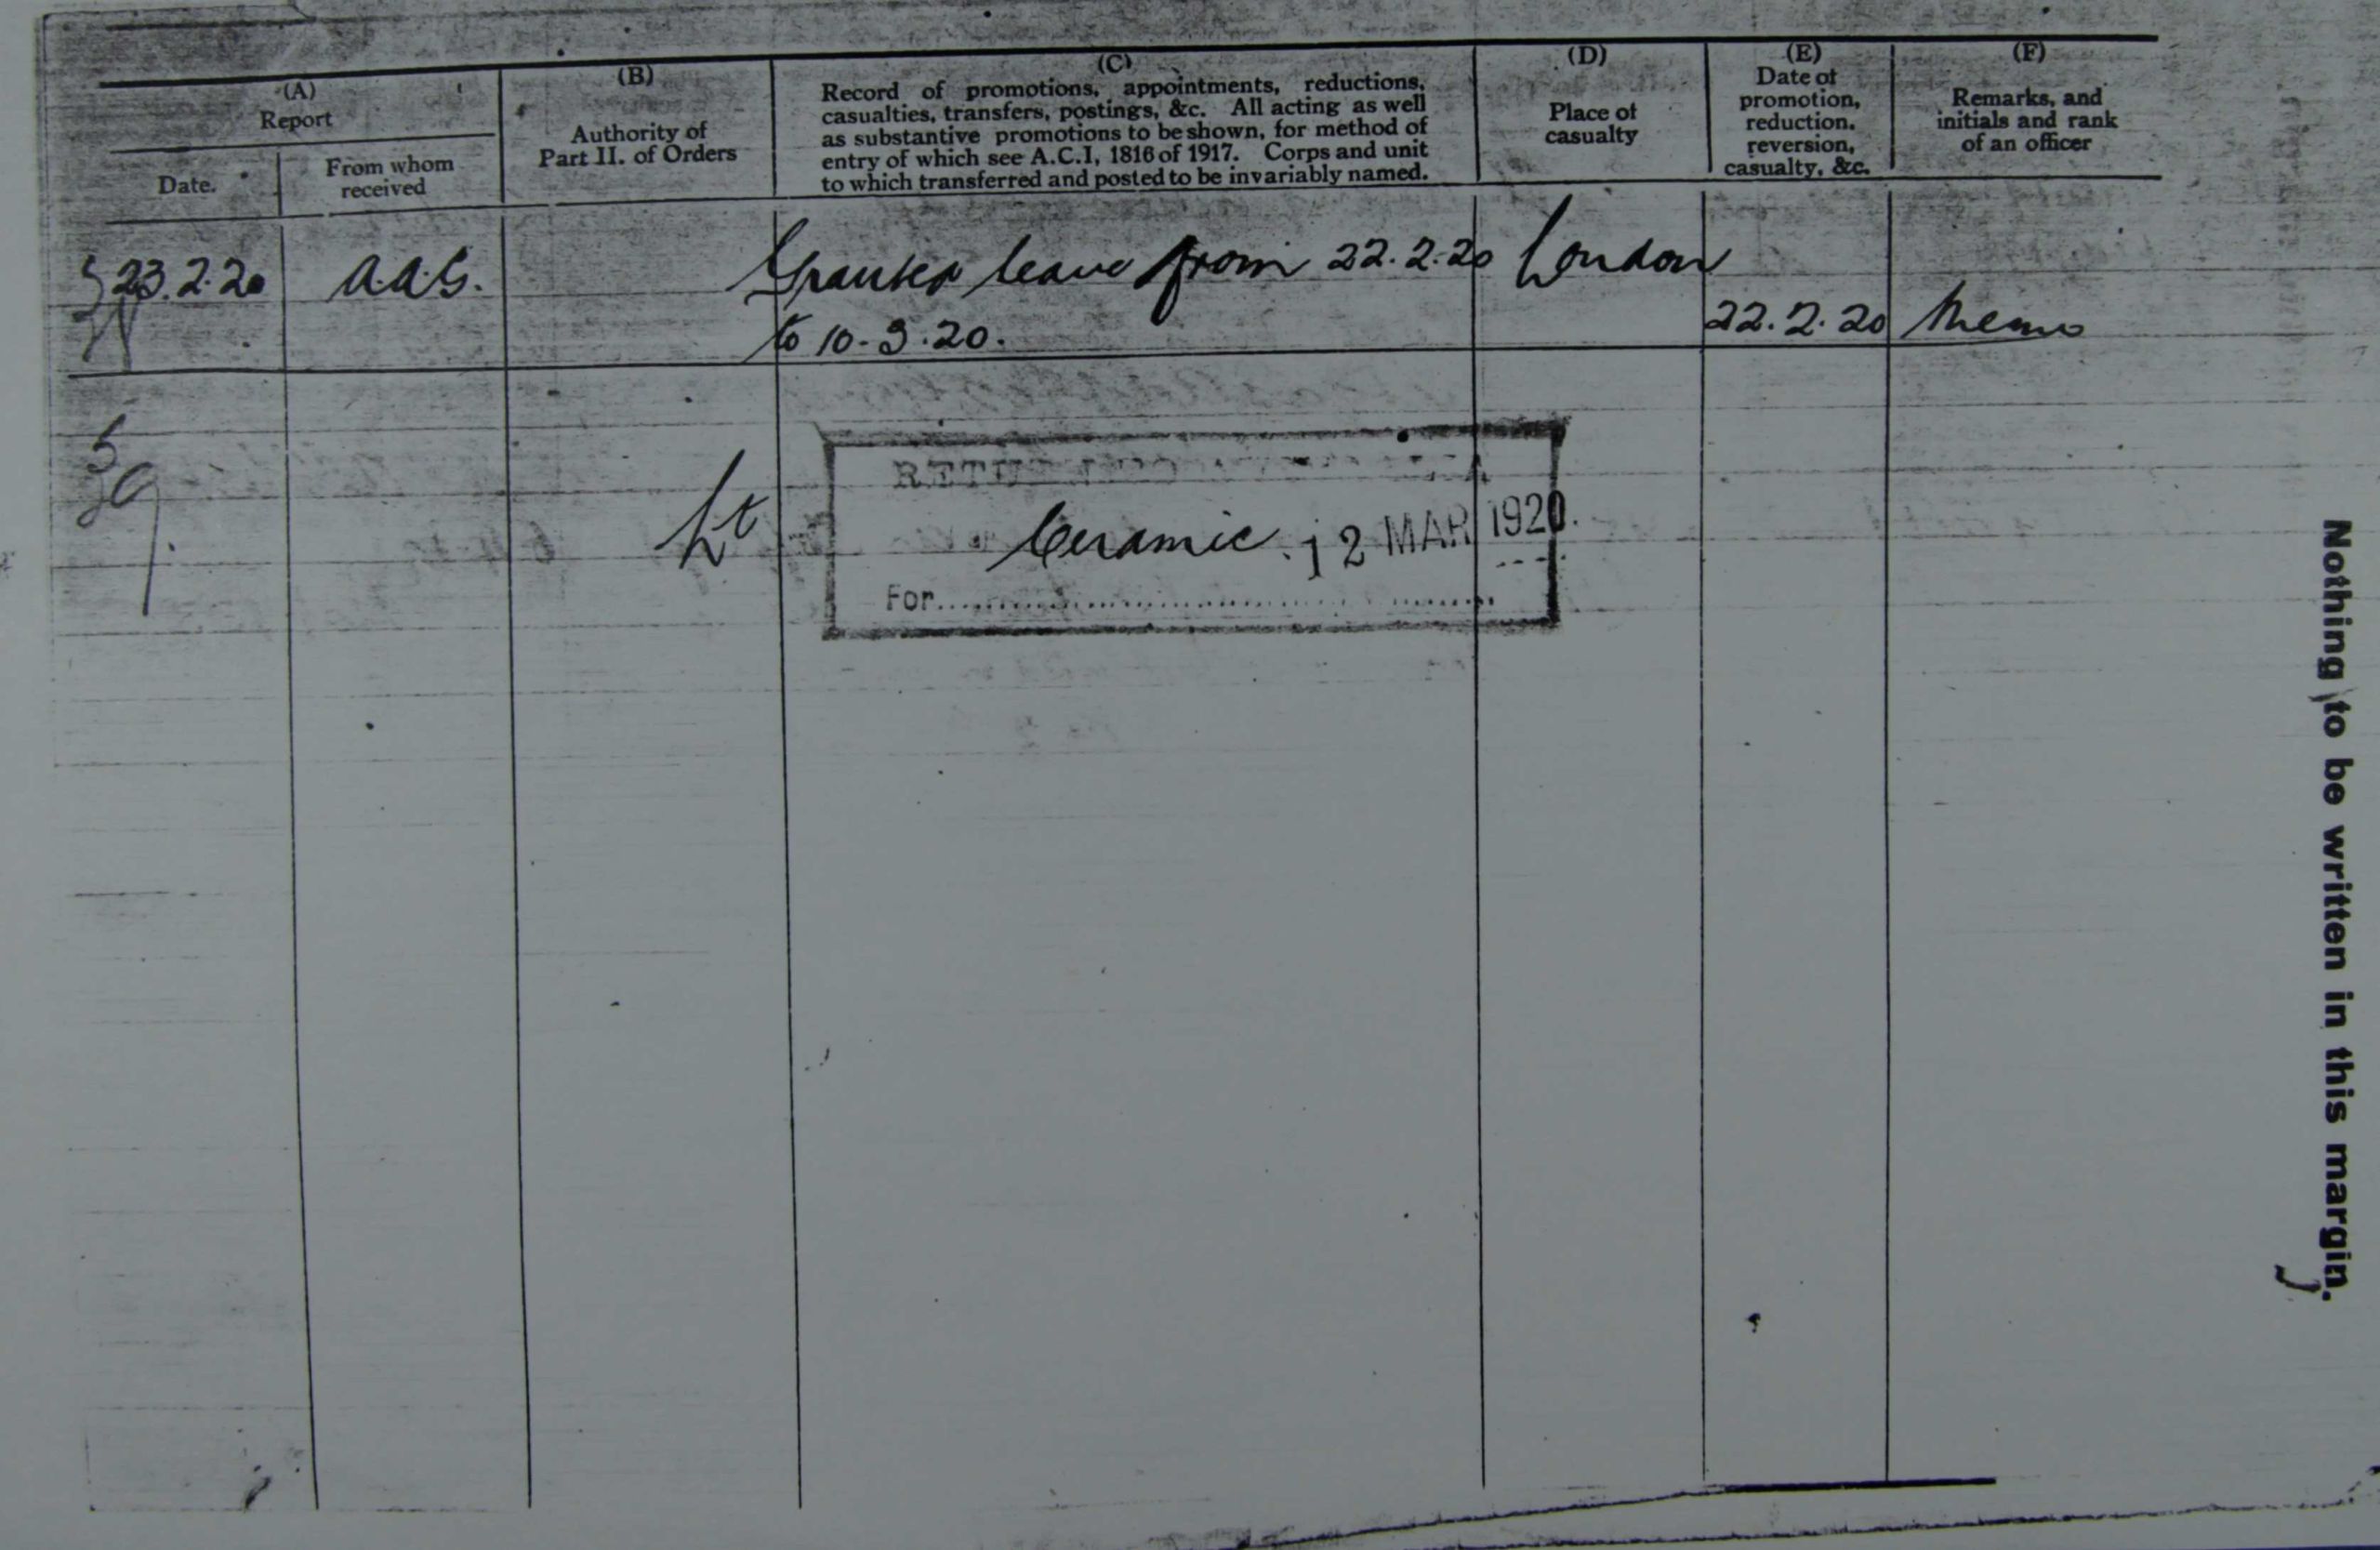 (A)
Report
Date.
From whom
received
(B)
Authority of
Part II. of Orders
(C)
Record of promotions, appointments, reductions,
casualties, transfers, postings, &c. All acting as well
as substantive promotions to be shown, for method of
entry of which see A.C.I, 1816 of 1917. Corps and unit
to which transferred and posted to be invariably named.
(D)
Place of
casualty
(E)
Date of
promotion,
reduction,
reversion,
casualty, &c.
(F)
Remarks, and
initials and rank
of an officer
23.2.20
A.A.G.
Granted leave from 22.2.20
to 10.3.20.
London
22.2.20
Memo
Lt
Ceramic. 12 MAR 1920.
For
Nothing to be written in this margin.